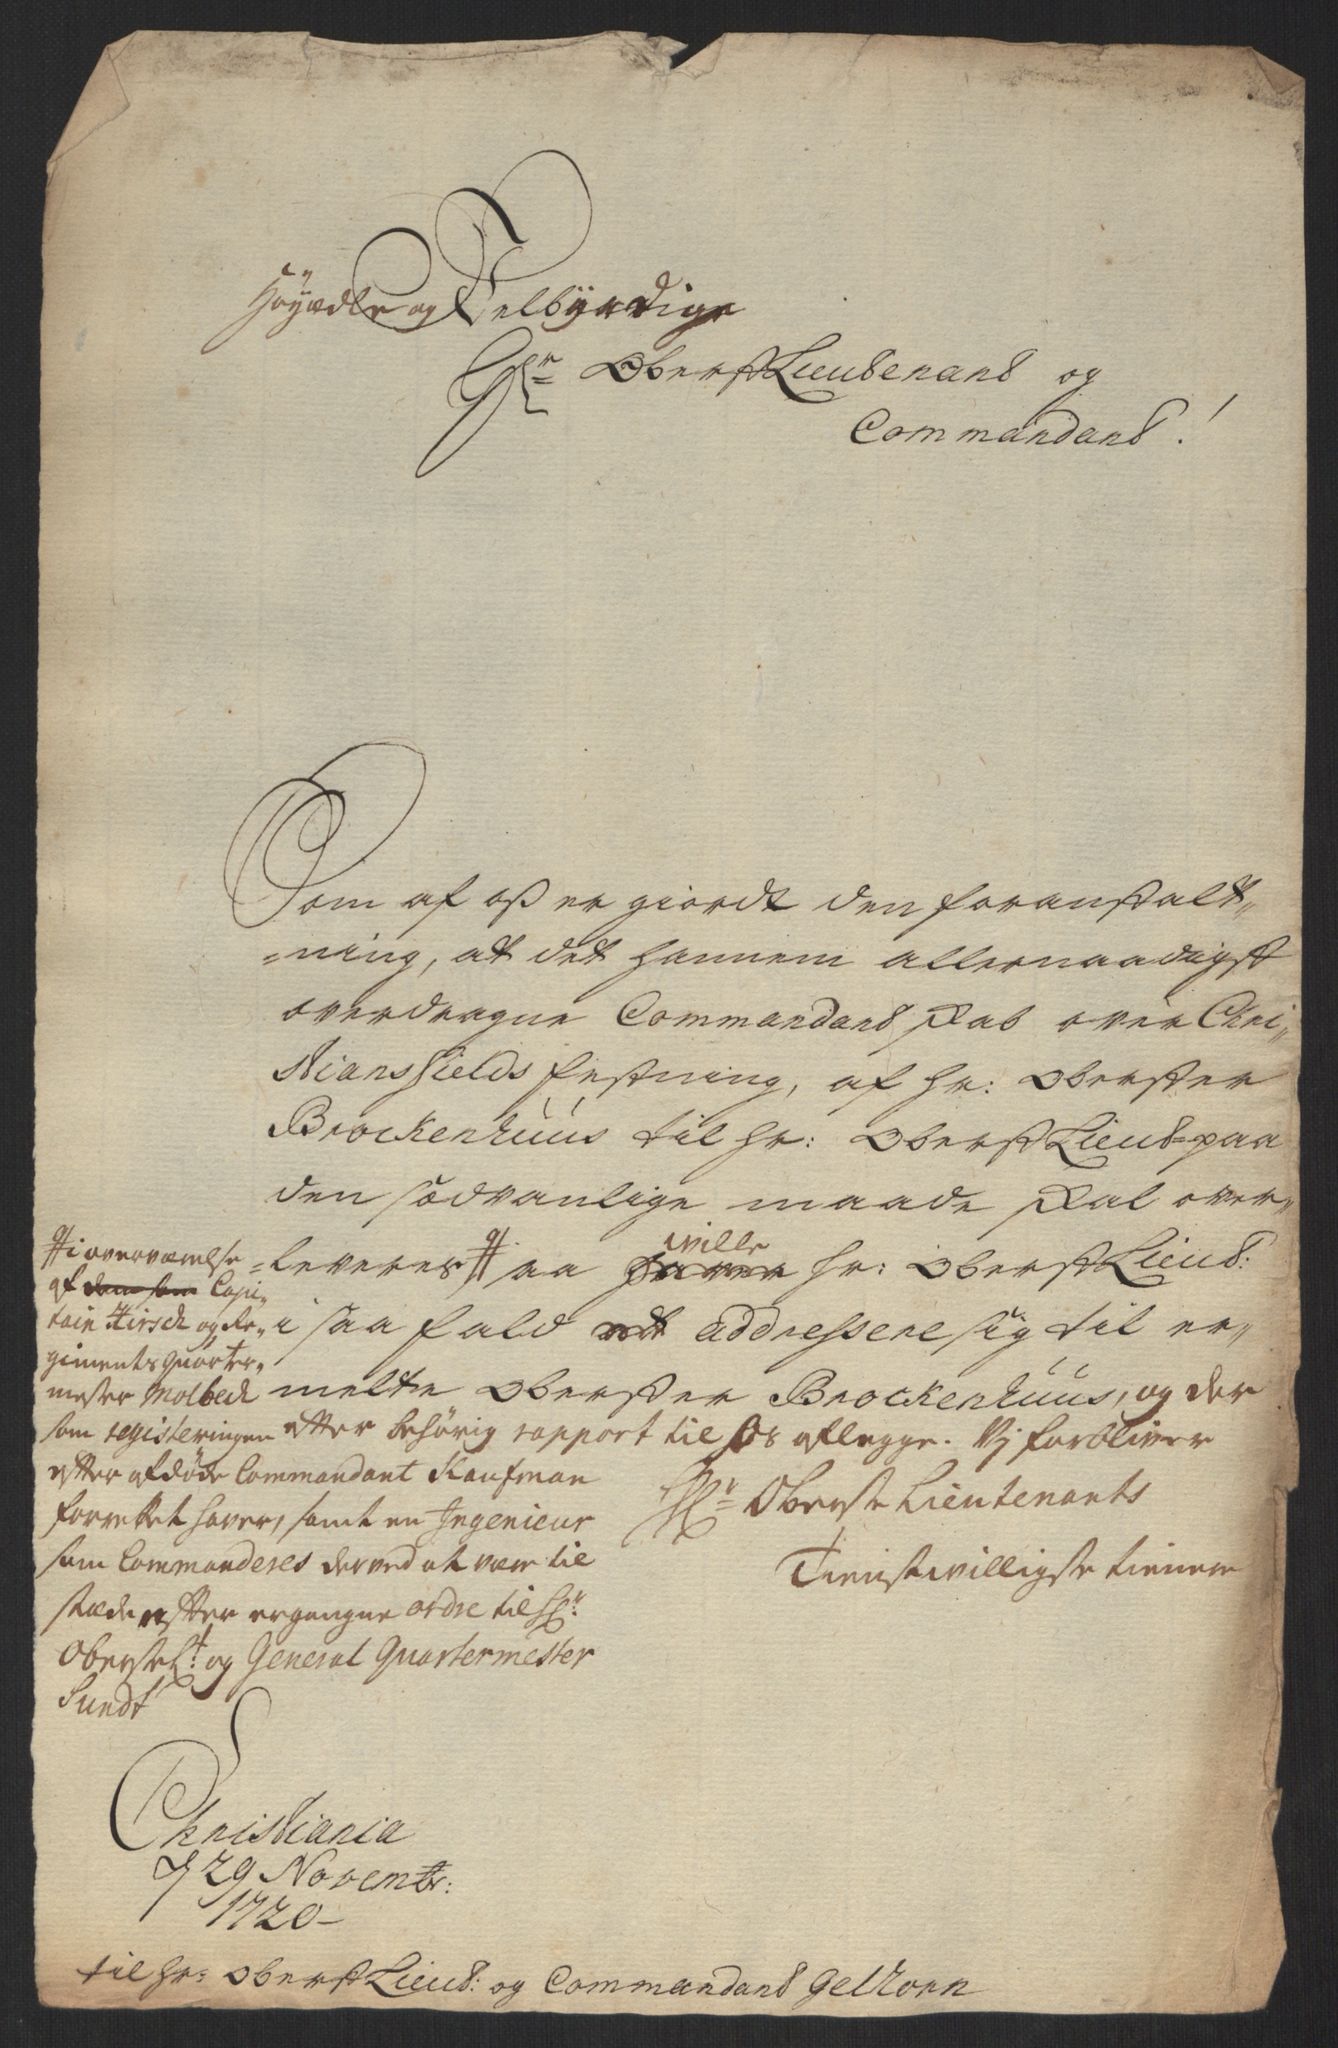 Höÿædle og Velbÿrdige
Hr Oberst Lieutenant og
Commandant!
Som af oß er giordt den foranstalt-
-ning, at det hannem allernaadigst
overdragne Commandantskab over Chri-
stiansfields festning, af hr: Oberster
Brockenhuus til hr: Oberst Lieut: paa
den sædvanlige maade skal over-
ville
-leveres # saa haver hr: Oberst Lieut:
i saa fald at addressere sig til er-
melte Oberster Brockenhuus, og der
efter behörig rapport til os aflegge. Vj forbliver
Hr Oberste Lieutenants
Tienstwilligste tienere
# i overværelse
af dem som Capi-
tain Hirsch og Re-
giments quarter-
mester Molbech
som registeringen
efter afdøde Commandant Kaufman
forrettet haver, samt en Ingenieur
som Commanderes derved at være til
stæde efter ergangne ordre til Hr:
Oberste Lt: og General Quartermester
Sundt
Christiania
d 29 Novembr:
1720-
til hr: Oberst Lieut: og Commandant Gelhorn